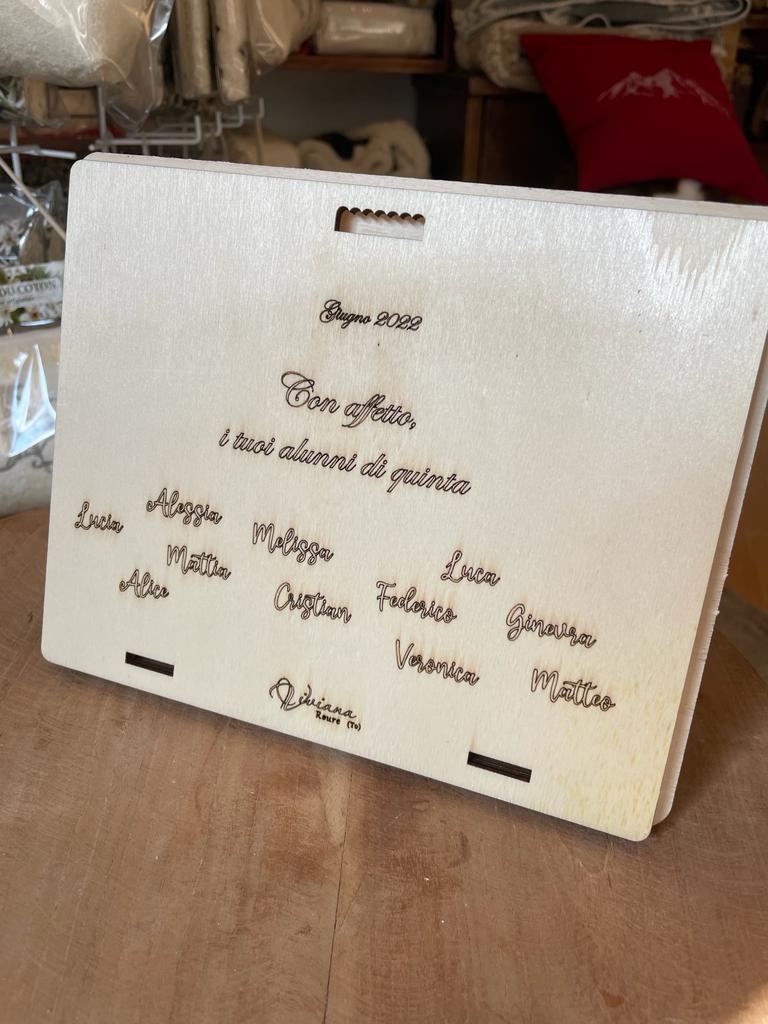 Giugno 2022
Con affetto,
i tuoi alunni di quinta
Lucia Alessia Melissa Luca
Mattia
Alice Cristian Federico Ginevra
Veronica Matteo
Viviana
Reure (To)
DU COTON